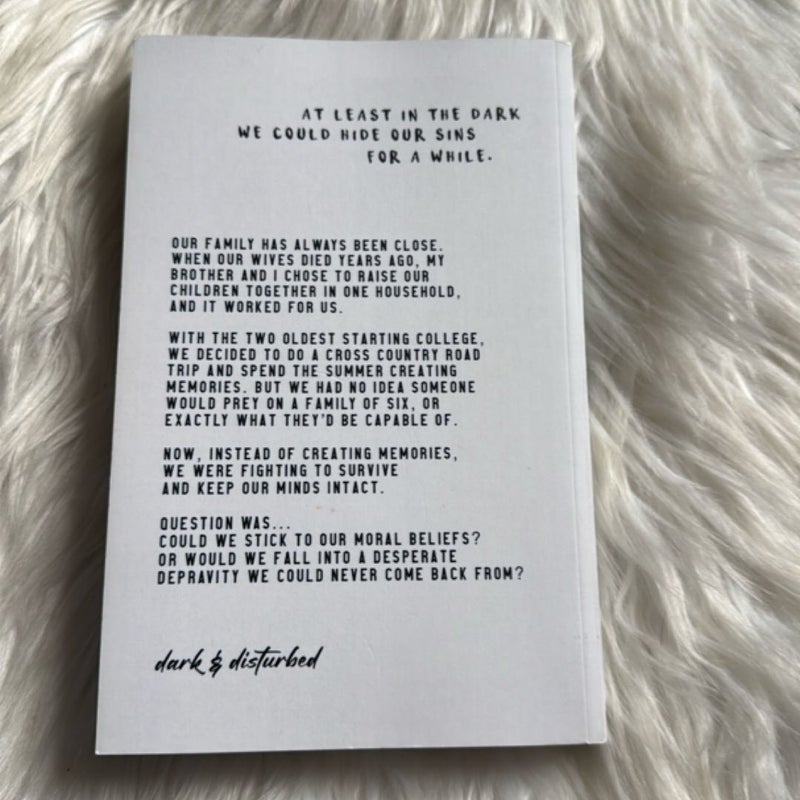 AT LEAST IN THE DARK
WE COULD HIDE OUR SINS
FOR A WHILE.
OUR FAMILY HAS ALWAYS BEEN CLOSE.
WHEN OUR WIVES DIED YEARS AGO, MY
BROTHER AND I CHOSE TO RAISE OUR
CHILDREN TOGETHER IN ONE HOUSEHOLD,
AND IT WORKED FOR US.
WITH THE TWO OLDEST STARTING COLLEGE,
WE DECIDED TO DO A CROSS COUNTRY ROAD
TRIP AND SPEND THE SUMMER CREATING
MEMORIES. BUT WE HAD NO IDEA SOMEONE
WOULD PREY ON A FAMILY OF SIX, OR
EXACTLY WHAT THEY'D BE CAPABLE OF.
NOW, INSTEAD OF CREATING MEMORIES,
WE WERE FIGHTING TO SURVIVE
AND KEEP OUR MINDS INTACT.
QUESTION WAS...
COULD WE STICK TO OUR MORAL BELIEFS?
OR WOULD WE FALL INTO A DESPERATE
DEPRAVITY WE COULD NEVER COME BACK FROM?
dark & disturbed